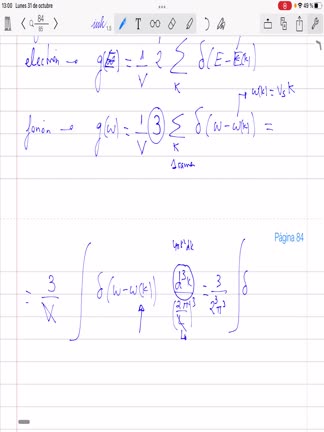 13:00 Lunes 31 de octubre
49 %
84
85
electrón → g(E) = 1/V 2 ∑_K δ(E - E(k))
→ ω(k) = v_s k
fonón → g(ω) = 1/V 3 ∑_K δ(ω - ω(k)) =
1 rama
Página 84
4πk²dk
= 3/V ∫ δ(ω - ω(k)) d³k/(2π/L)³ = 3/2³π³ ∫ δ